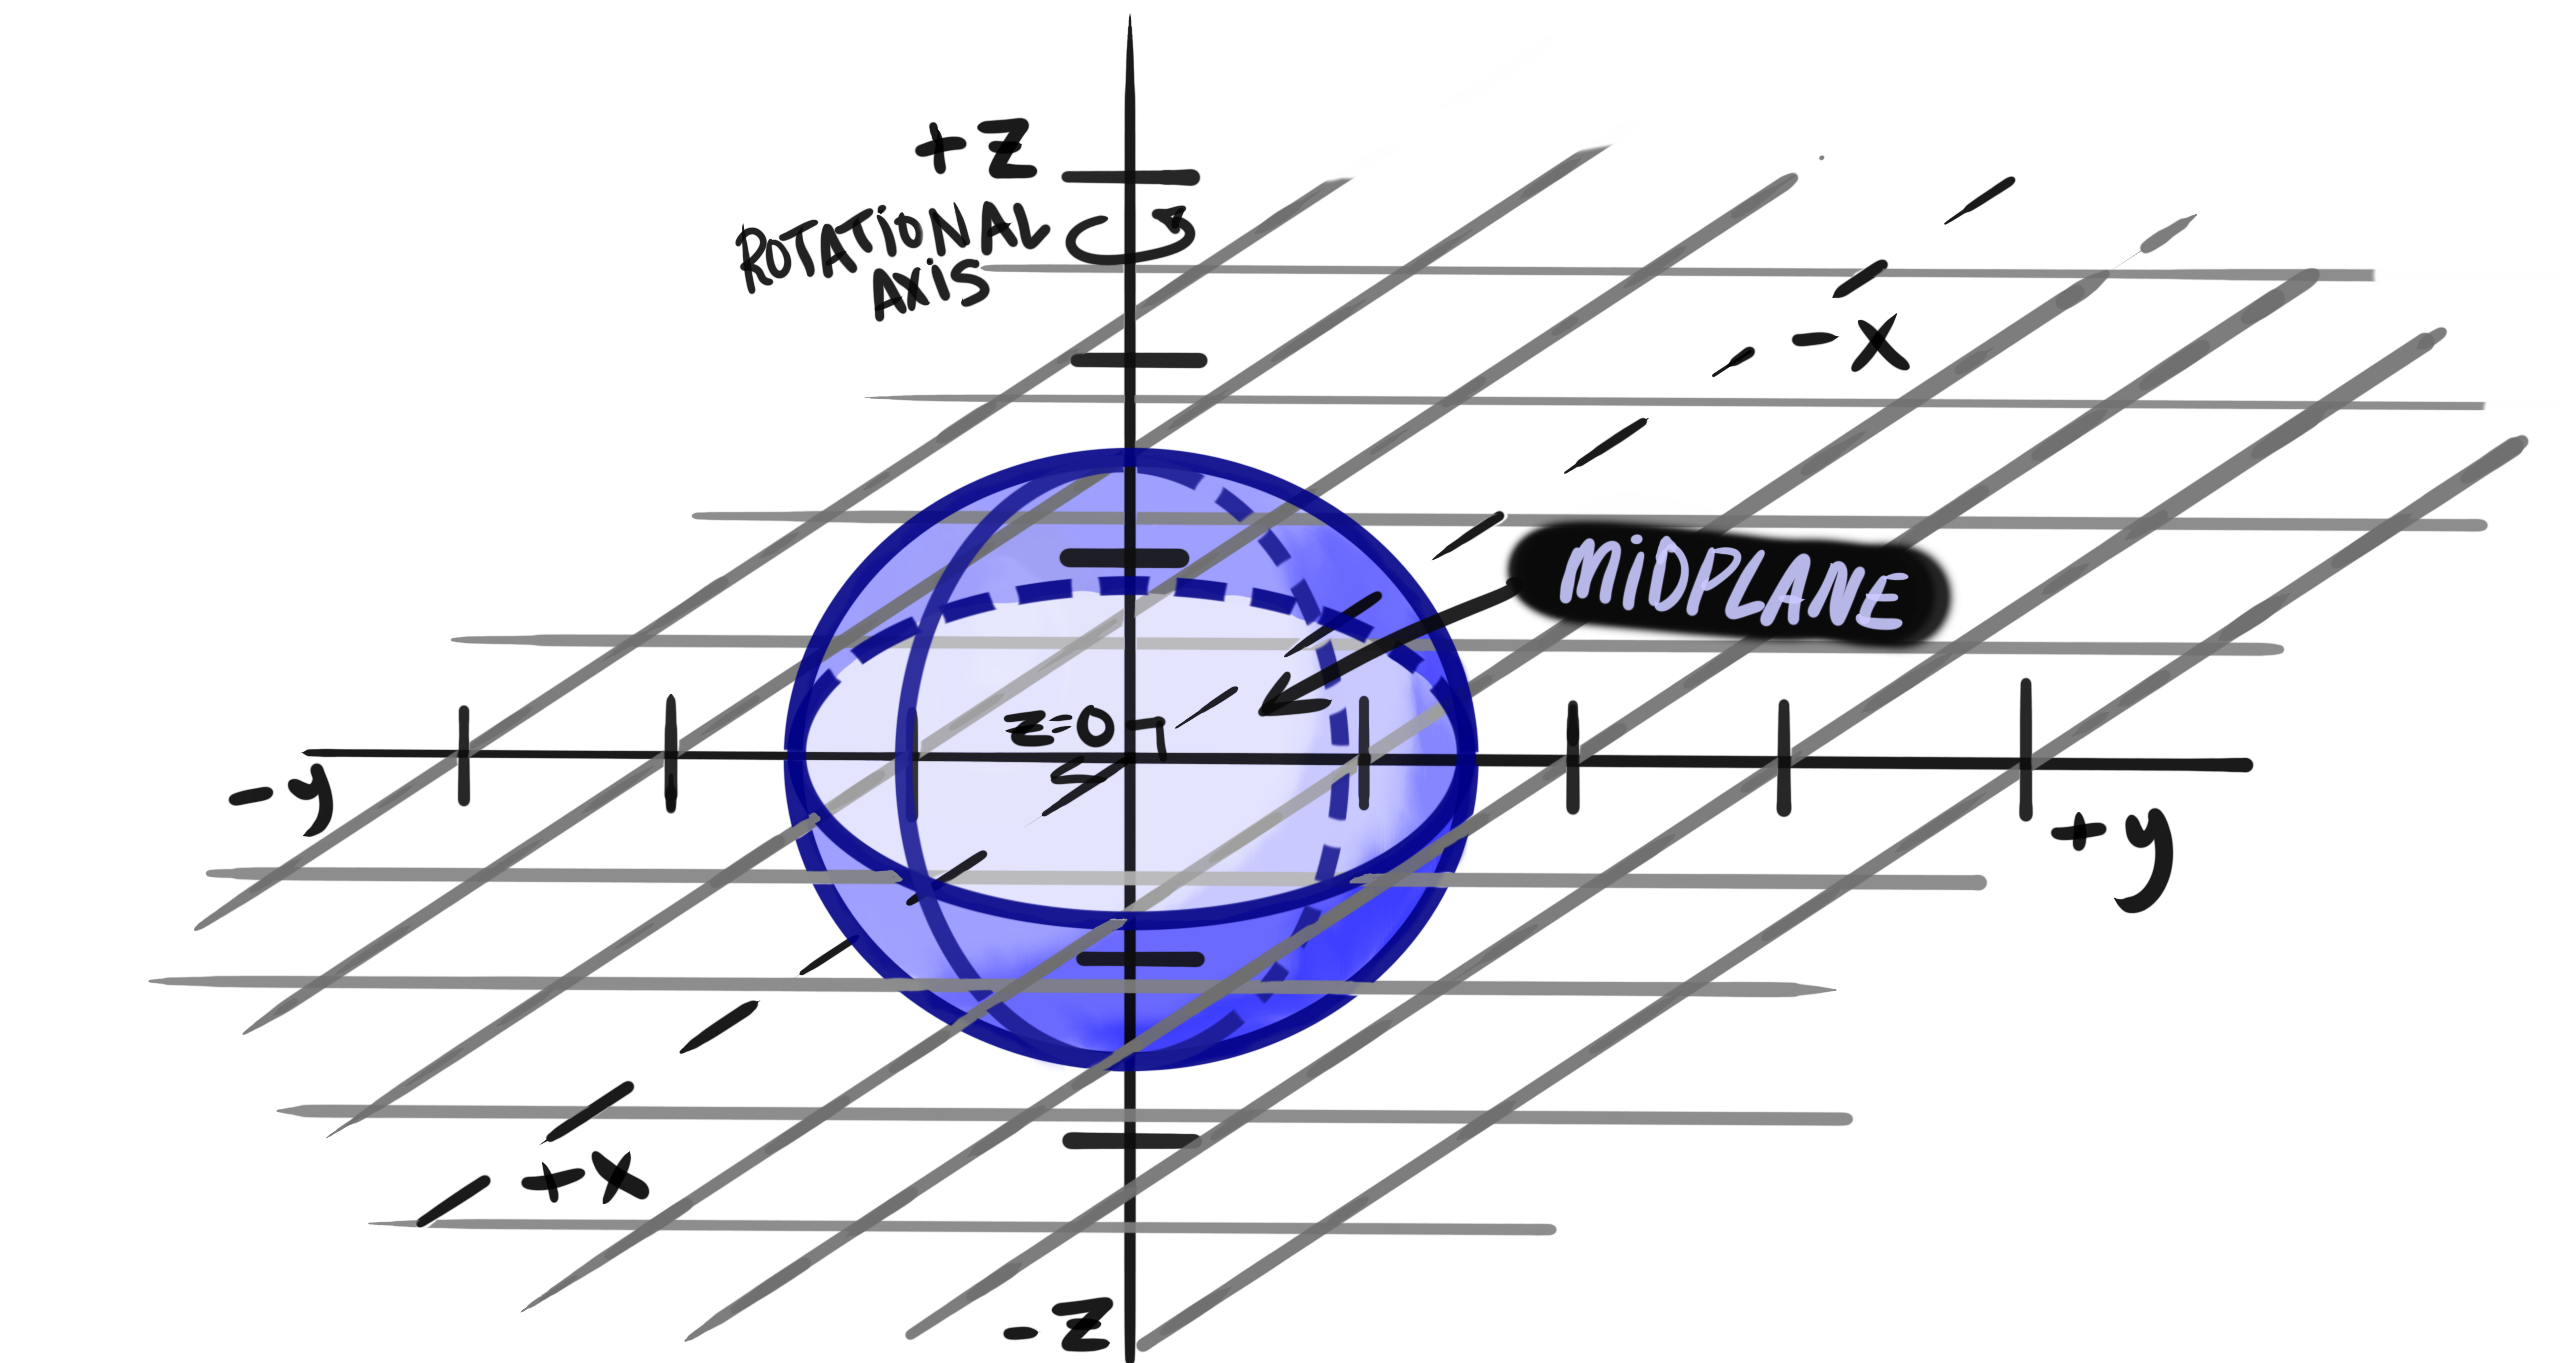 +Z
ROTATIONAL
AXIS
-X
MIDPLANE
z=0
-y
+y
+X
-Z